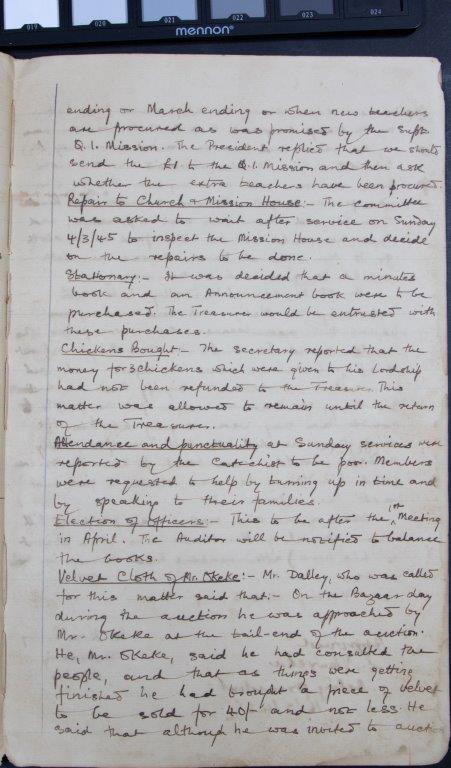 019 020 021 022 023 024
mennon
ending or March ending or when new teachers
are procured as was promised by the Supt.
Q.I. Mission. The President replied that we should
send the £1 to the Q.I. Mission and then ask
whether the extra teachers have been procured.
Repair to Church & Mission House:- The committee
was asked to wait after service on Sunday
4/3/45 to inspect the Mission House and decide
on the repairs to be done.
Stationary:- It was decided that a minutes
book and an Announcement book were to be
purchased. The Treasurer would be entrusted with
these purchases.
Chickens Bought:- The secretary reported that the
money for 3 chickens which were given to his Lordship
had not been refunded to the Treasurer. This
matter was allowed to remain until the return
of the Treasurer.
Attendance and punctuality at Sunday services were
reported by the Catechist to be poor. Members
were requested to help by turning up in time and
by speaking to their families.
Election of officers:- This to be after the 1st Meeting
in April. The Auditor will be notified to balance
the books.
Velvet Cloth of Mr. Okeke:- Mr. Dalley, who was called
for this matter said that:- On the Bazaar day
during the auction he was approached by
Mr. Okeke at the tail-end of the auction.
He, Mr. Okeke, said he had consulted the
people, and that as things were getting
finished he had brought a piece of velvet
to be sold for 40/- and not less. He
said that although he was invited to auction